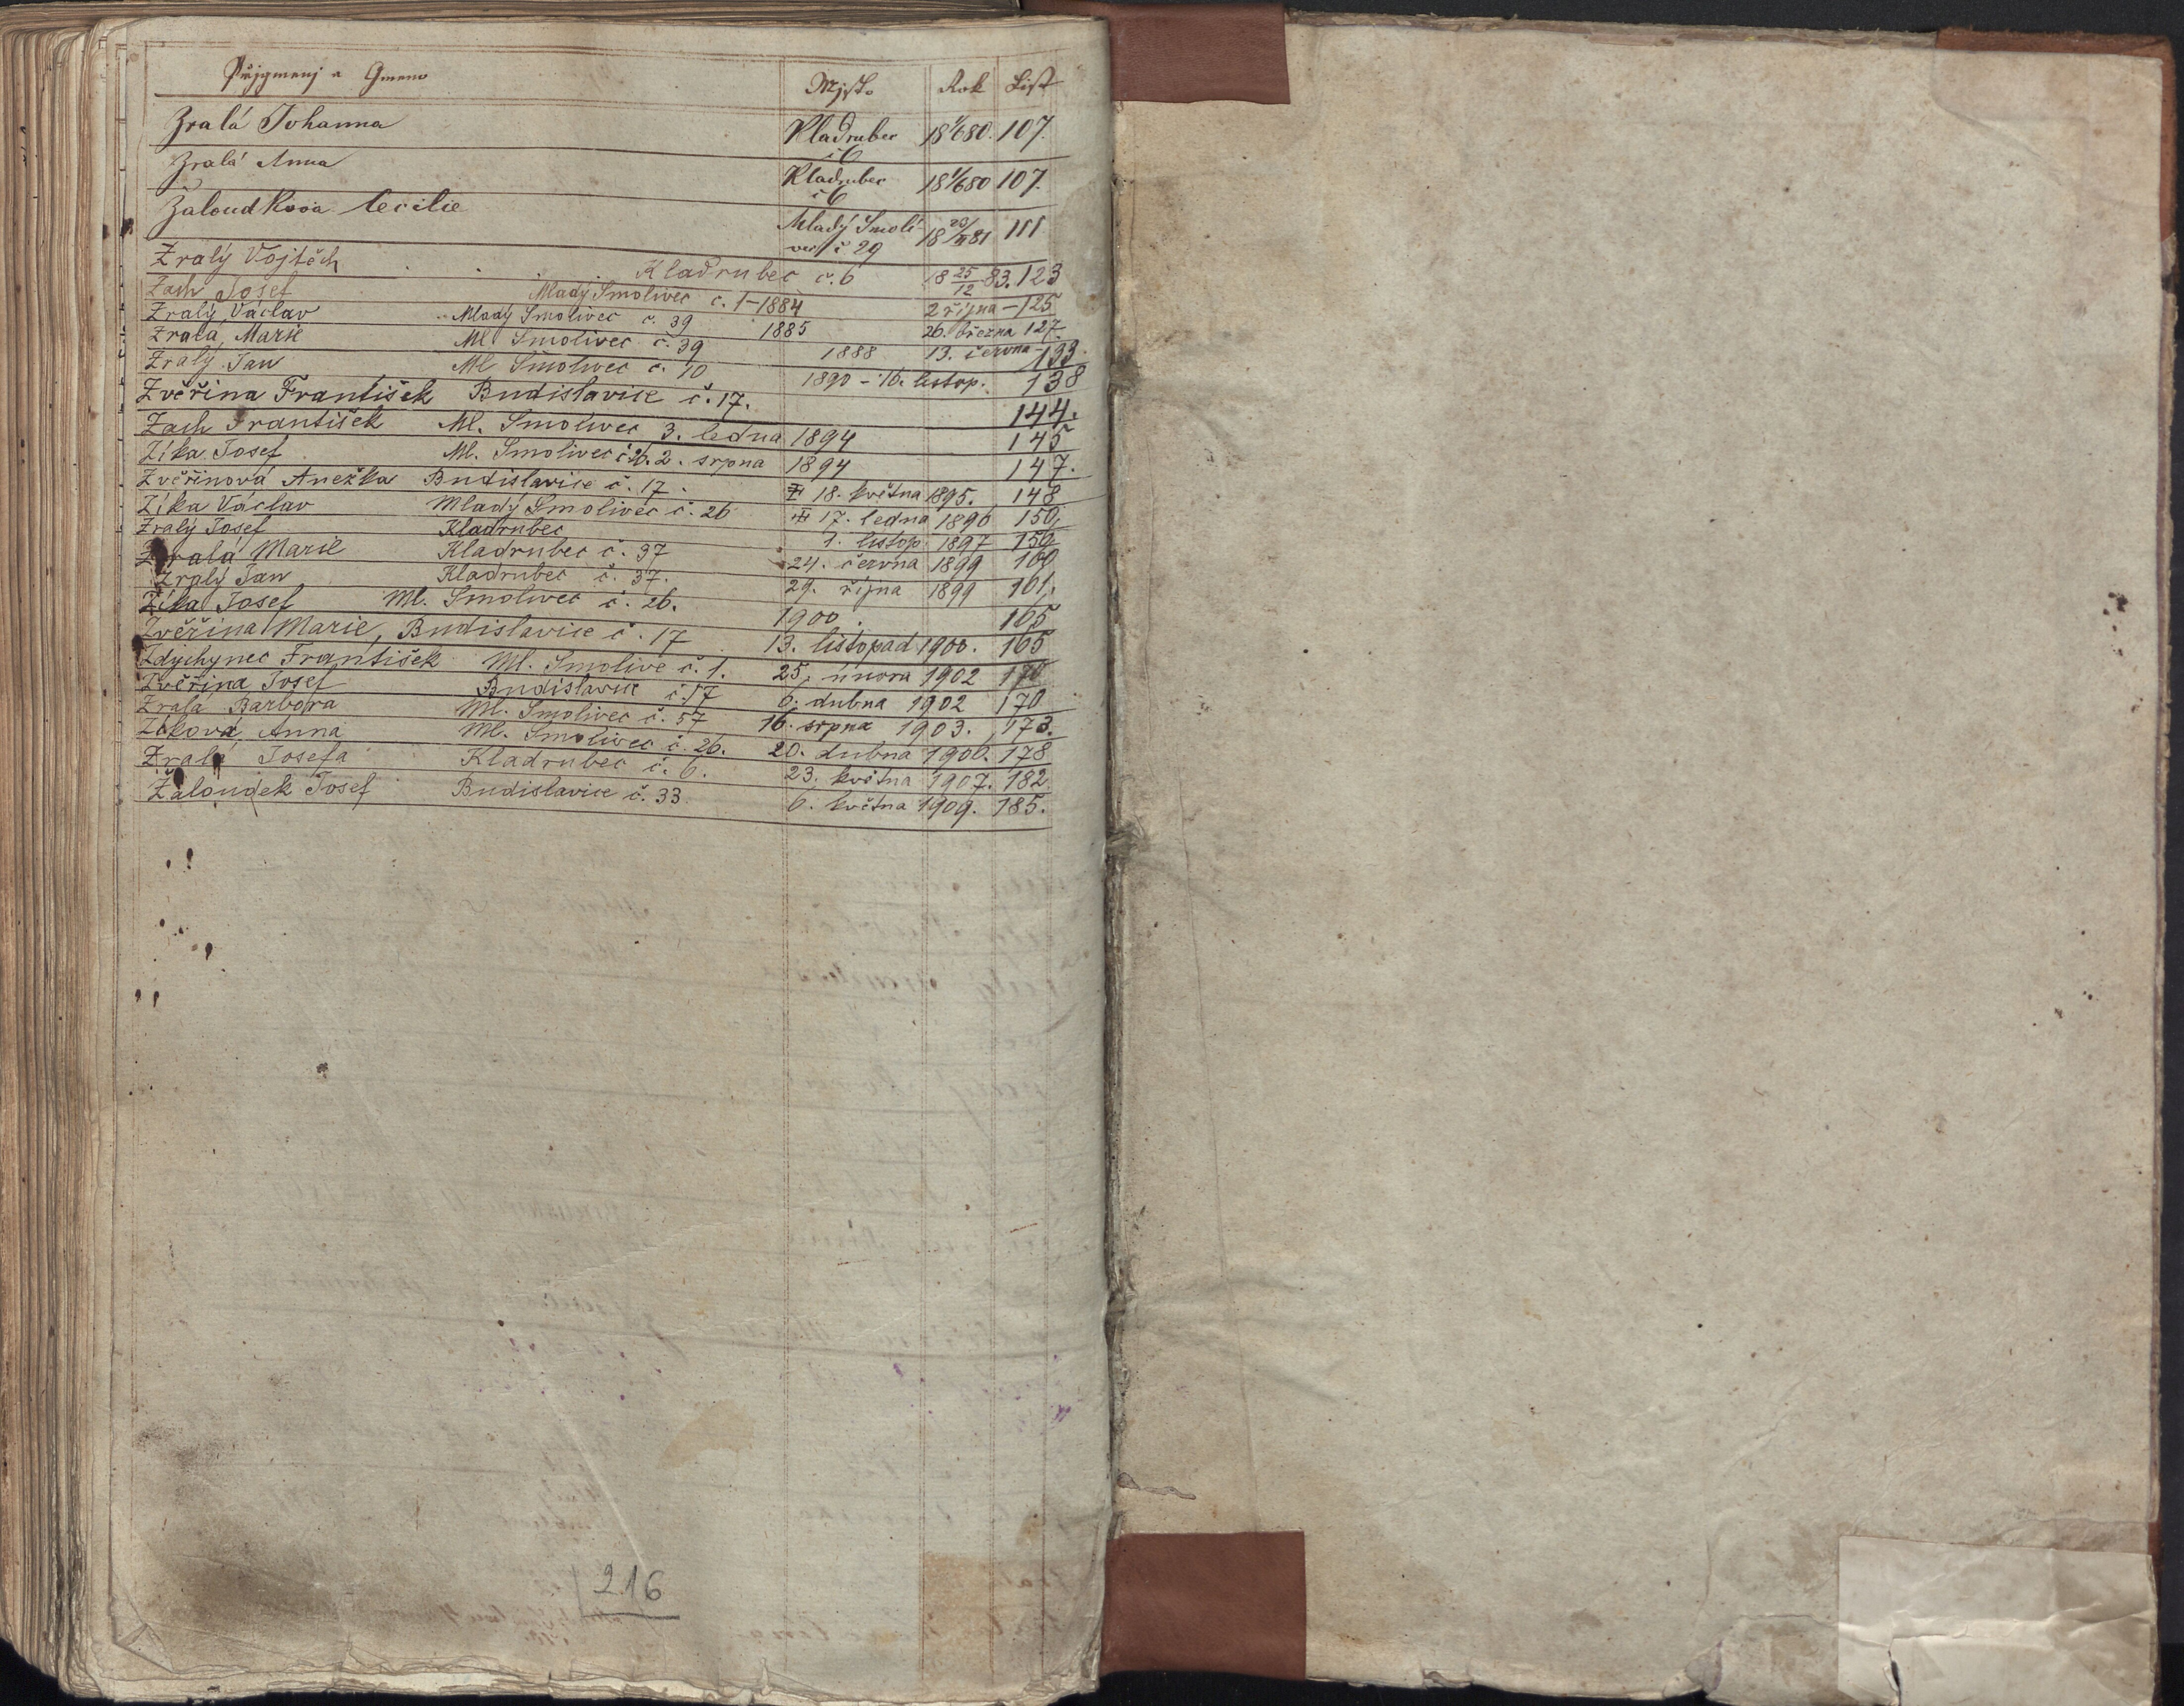 Přigmenj a Gmeno Mjsto Rok List
Zralá Johanna Kladrubec č 6 18 1/6 80. 107.
Zralá Anna Kladrubec č 6 18 1/6 80 107.
Žaloudkova Cecilie Mladý Smoli-
vec č 29 18 20/II 81 111
Zralý Vojtěch Kladrubec č. 6 18 25/12 83. 123
Zach Josef Mladý Smolivec č. 1-1884 2 října - 125
Zralý Václav Mladý Smolivec č. 39 1885 26. března 127
Zralá Marie Ml Smolivec č. 39 1888 13. června - 133.
Zralý Jan Ml Smolivec č. 10 1890 - 16. listop. 138
Zvěřina František Budislavice č. 17. 144.
Zach František Ml. Smolivec 3. ledna 1894 145
Zíka Josef Ml. Smolivec č 26. 2. srpna 1894 147.
Zvěřinová Anežka Budislavice č. 17. 18. května 1895. 148
Zíka Václav Mladý Smolivec č. 26 17. ledna 1896 150.
Zralý Josef Kladrubec 1. listop. 1897 156
Zralá Marie Kladrubec č. 37 24. června 1899 160
Zralý Jan Kladrubec č. 37. 29. října 1899 161.
Zíka Josef Ml. Smolivec č. 26. 1900. 165
Zvěřina Marie, Budislavice č. 17 13. listopad 1900. 165
Zdychynec František Ml. Smolive č. 1. 25. února 1902 170
Zvěřina Josef Budislavice č. 17 6. dubna 1902 170
Zralá Barbora Ml. Smolivec č. 57 16. srpna 1903. 173.
Zíková Anna Ml. Smolivec č. 26. 20. dubna 1906. 178
Zralá Josefa Kladrubec č. 6. 23. května 1907. 182.
Žaloudek Josef Budislavice č. 33 6. května 1909. 185.
216